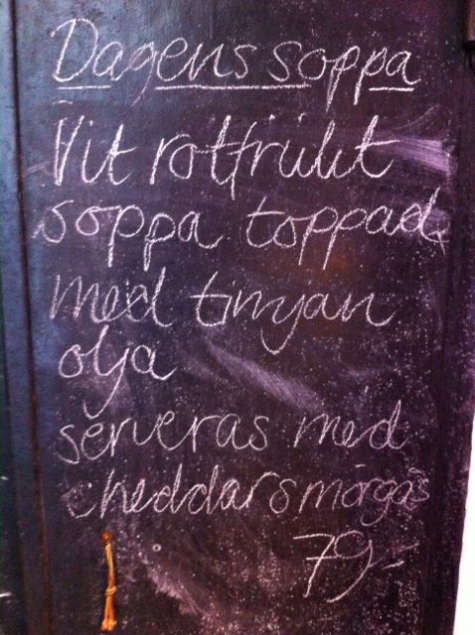 Dagens soppa
Vit rotfrukt
soppa toppad
med timjan
olja
serveras med
cheddarsmörgås
79:-